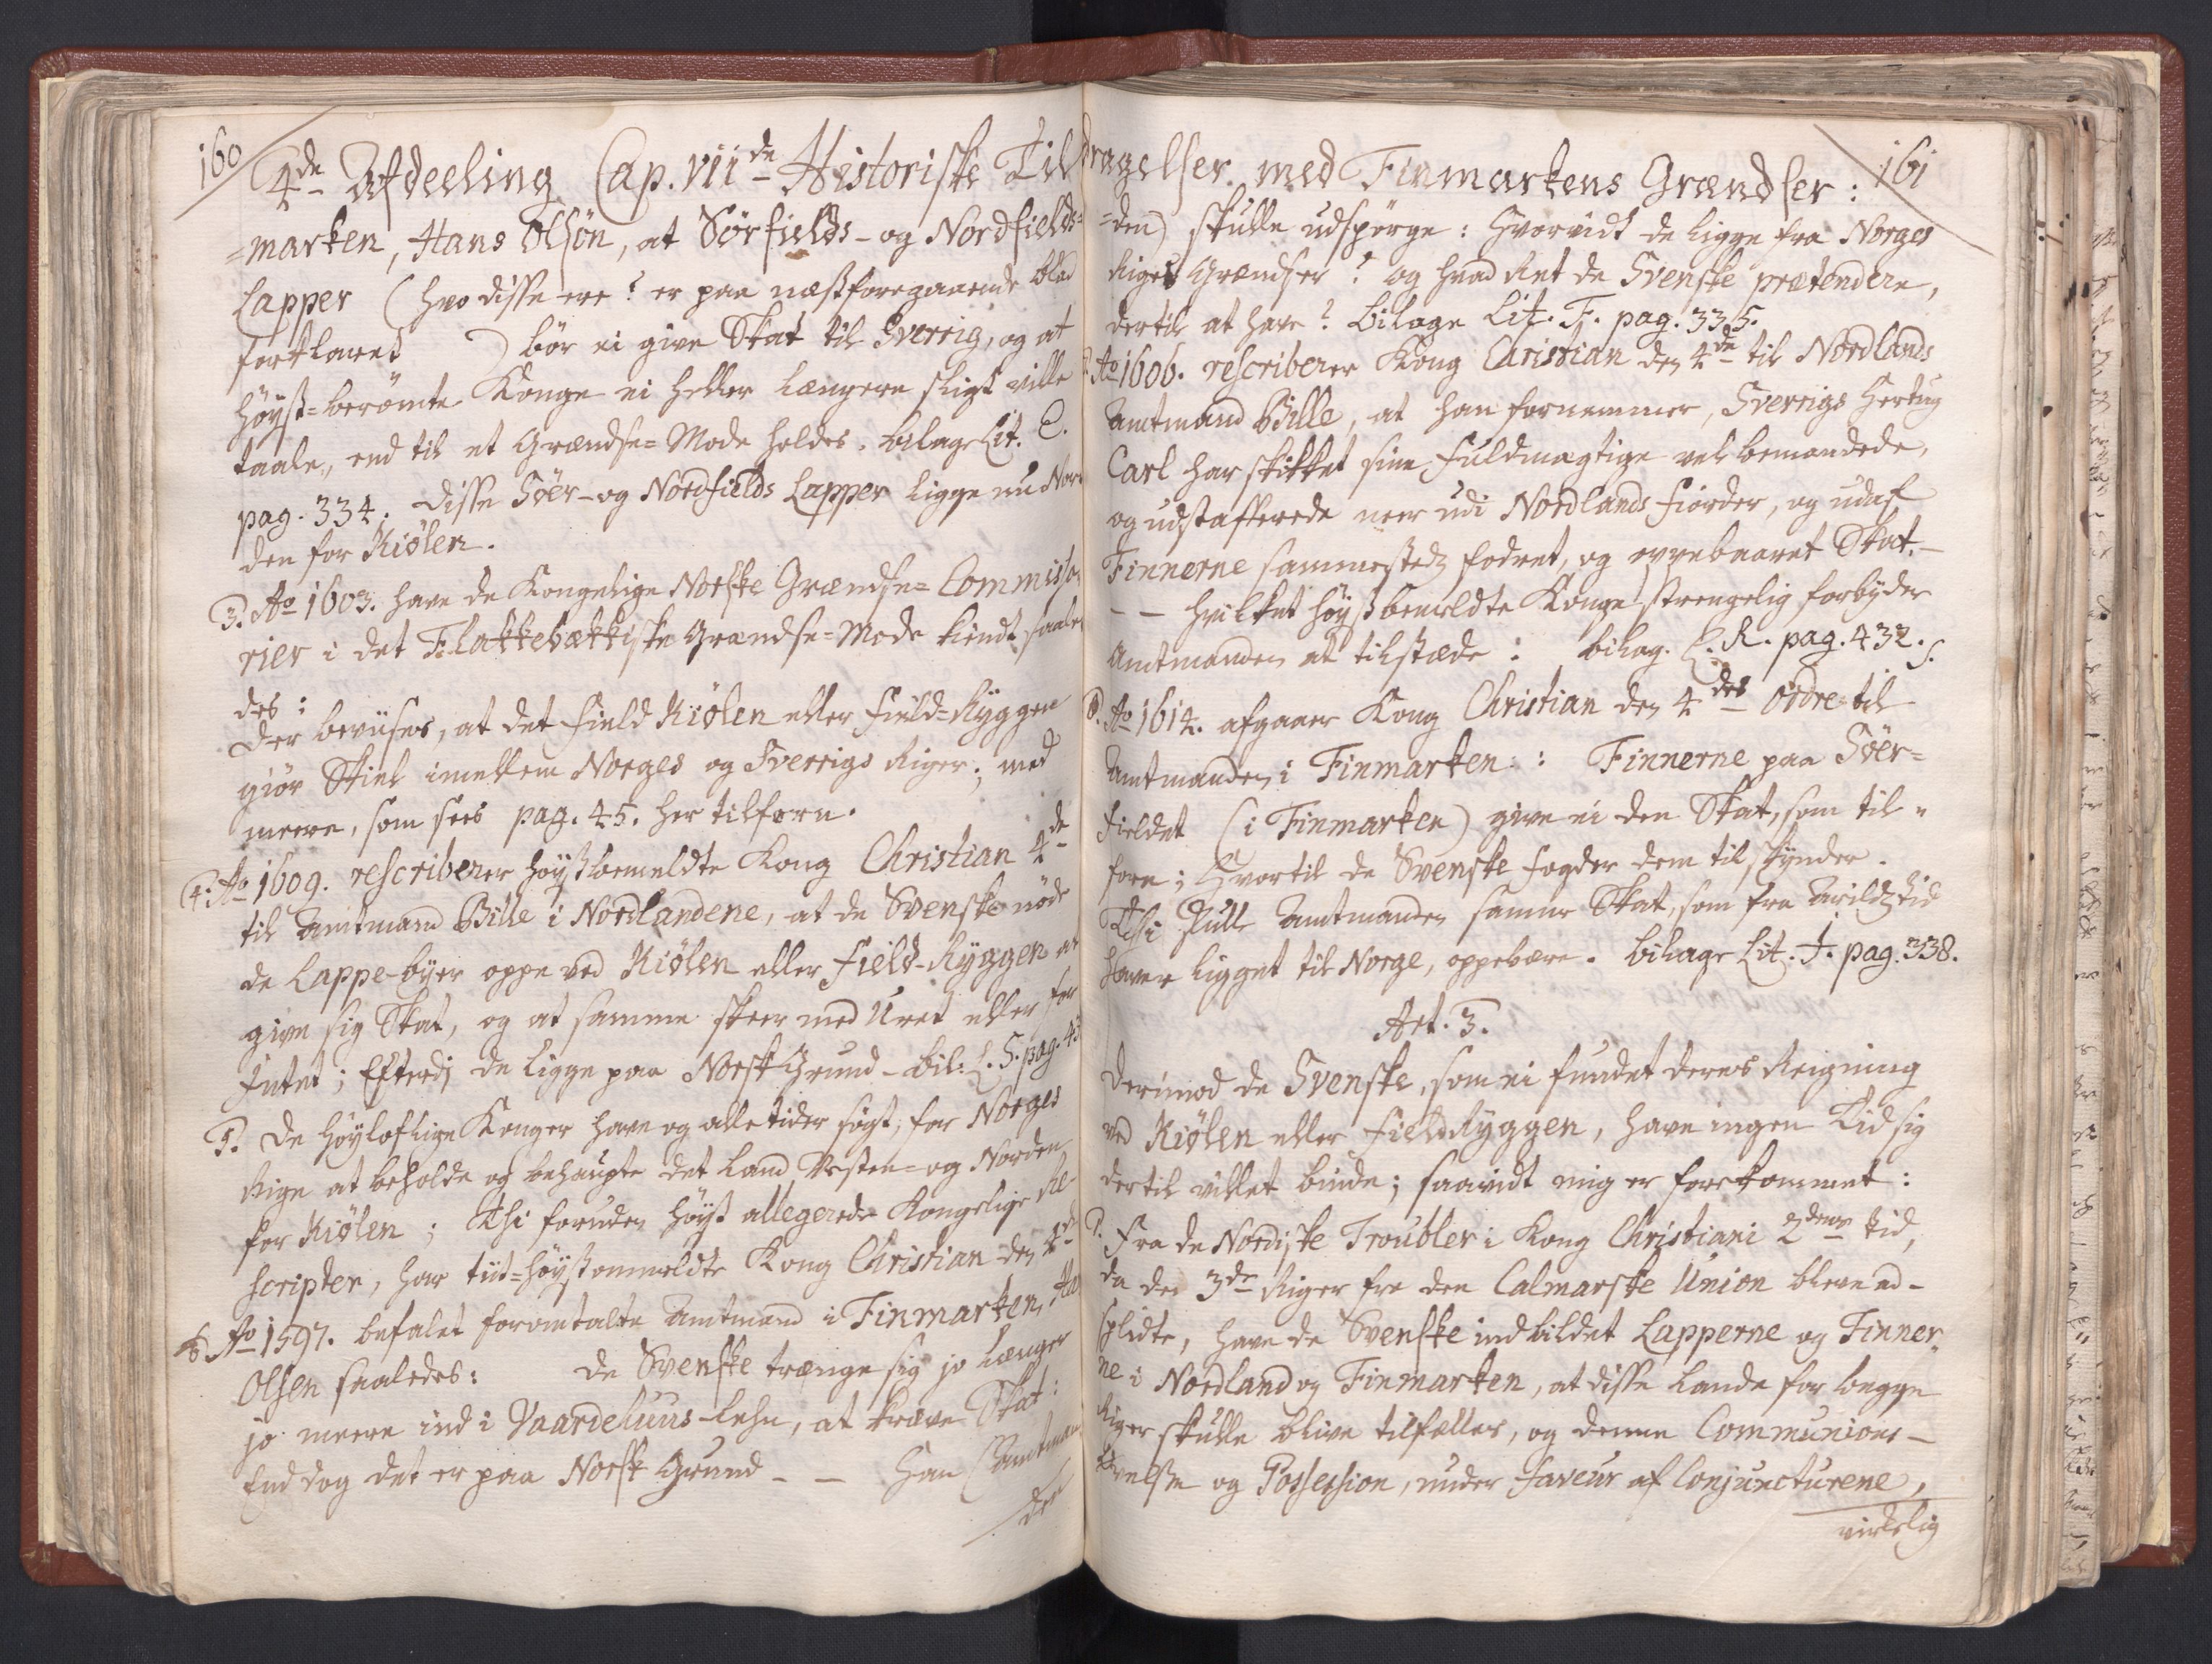 160
4de Afdeeling Cap. VIIde Historiske Til
=marken, Hans Olsön, at Sörfields- og Nordfields=
Lapper (hvo disse ere? er paa næstforegaaende blad
forklaret) bör ei give Skat til Sverrig, og at
höyst=berömte Konge ei heller længere sligt ville
taale, end til et Grændse=Mode holdes. bilage Lit. E.
pag. 334. Disse Söer- og Nordfields Lapper ligge nu Nor
den for Kiölen.
3. Ao 1603. have de Kongelige Norske Grændse=Commissa
rier i det Flakkebækkiske Grændse=Mode kiendt saale
des:
Der beviises, at det field Kiölen eller field=Ryggen
giör Skiel imellem Norges og Sverrigs Riger; med
meere, som sees pag. 45. her tilforn.
4. Ao 1609. rescriberer höystbemeldte Kong Christian 4de
til Amtmand Bille i Nordlandene, at de Svenske nöde
de Lappe-byer oppe ved Kiölen eller field-Ryggen at
give sig Skat, og at samme skeer med Uret eller for
Intet; Efterdi de ligge paa Norsk Grund - bil: L. S. pag. 43
5. De höyloflige Konger have og alletider sögt, for Norges
Rige at beholde og behaupte det Land Vesten= og Norden
for Kiölen; Thi foruden höyst allegerede Kongelige Re-
scripter, har tiit=höystommeldte Kong Christian den 4de
6. Ao 1597. befalet foromtalte Amtmand i Finmarken, Han
Olsen saaledes: De Svenske trænge sig jo længer
jo meere ind i Vaardehuus-lehn, at kræve Skat;
End dog det er paa Norsk Grund - - Han (Amtman
den
dragelser med Finmarkens Grændser: 161
=den) skulle udspörge: Hvorvidt de ligge fra Norges
Riges Grændser? og hvad Ret de Svenske prætendere,
dertil at have? bilage Lit. F. pag. 335.
Ao 1606. rescriberer Kong Christian den 4de til Nordlands
Amtmand Bille, at han fornemmer, Sverrigs Hertug
Carl har skikket sine fuldmægtige vel bemandede,
og udstafferede neer udi Nordlands fiorder, og udaf
Finnerne sammestedz fodret, og oppebaaret Skat. -
- - hvilket höystbemeldte Konge strengelig forbyder
Amtmanden at tilstæde: bilag. L. R. pag. 432. S.
8. Ao 1614. afgaaer Kong Christian den 4des Ordre til
Amtmanden i Finmarken: Finnerne paa Söer=
fieldet (i Finmarken) give ei den Skat, som til=
forn; Hvortil de Svenske fogder dem tilskynder.
Thi skulle Amtmanden samme Skat, som fra Arildz tid
haver ligget til Norge, oppebære. bilage Lit. I. pag. 338.
Art. 3.
Derimod de Svenske, som ei fundet deres Reigning
ved Kiölen eller fieldRyggen, have ingen Tid sig
dertil villet binde; saavidt mig er forekommet:
1. Fra de Nordiske Troubler i Kong Christiani 2dens tid,
da de 3de Riger fra den Calmarske Union bleve ad-
splidte, have de Svenske indbildet Lapperne og Finner-
ne i Nordland og Finmarken, at disse Lande for begge
Riger skulle blive tilfælles, og denne Communions-
övelse og Possession, under faveur af Conjuncturene,
virkelig